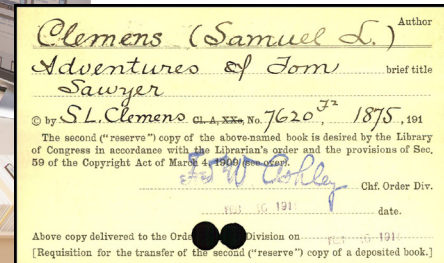 Author
Clemens (Samuel L.)
Adventures of Tom brief title
Sawyer
© by S.L. Clemens Cl. A, XXc, No. 7620, F2 1875, 191
The second ("reserve") copy of the above-named book is desired by the Library
of Congress in accordance with the Librarian's order and the provisions of Sec.
59 of the Copyright Act of March 4, 1909 (see over).
FW Ashley Chf. Order Div.
191 date.
Above copy delivered to the Orde Division on
[Requisition for the transfer of the second ("reserve") copy of a deposited book.]